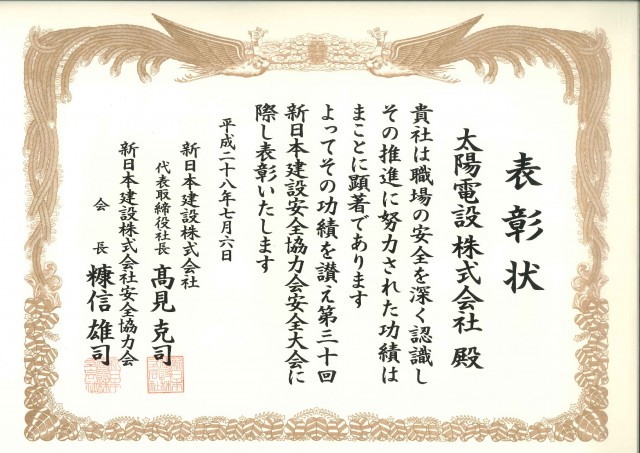 表彰状
太陽電設株式会社 殿
貴社は職場の安全を深く認識し
その推進に努力された功績は
まことに顕著であります
よってその功績を讃え第三十回
新日本建設安全協力会安全大会に
際し表彰いたします
平成二十八年七月六日
新日本建設株式会社
代表取締役社長 髙見克司
新日本建設株式会社安全協力会
会長 糠信雄司